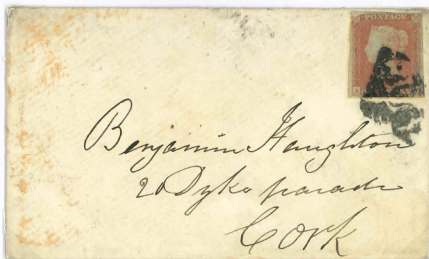 POSTAGE
Benjamin Haughton
20 Dyke parade
Cork